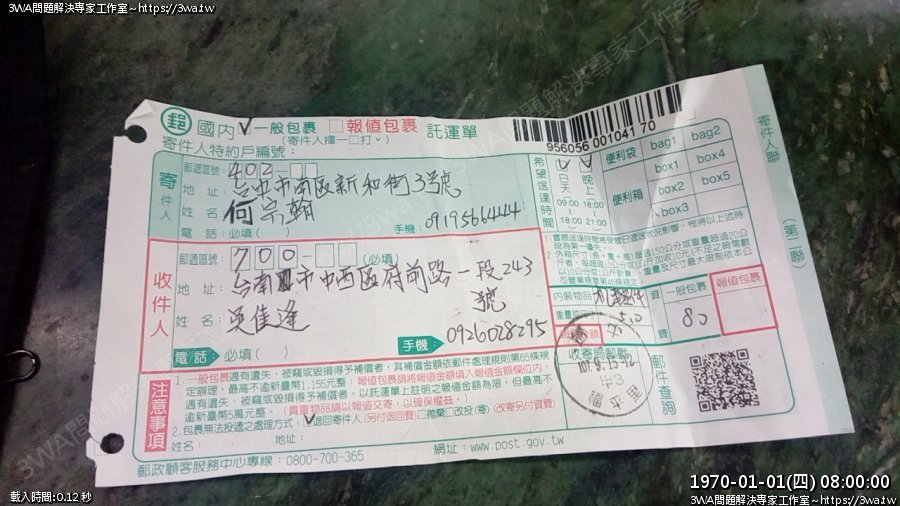 3WA問題解決專家工作室~https://3wa.tw
郵 國內 ✓一般包裹 □報值包裹 託運單
(寄件人擇一□打✓)
956056 001041 70
寄件人聯
(第二聯)
寄件人特約戶編號:
寄件人
郵遞區號: 402
地 址: 台中市南區新和街3號
姓 名: 何宗翰
電 話: 必填( )
手機: 0919566444
希望送達時間
白天 09:00~18:00
晚上 18:00~21:00
便利袋 bag1 bag2
便利箱 box1 box4
box2 box5
box3
收件人
郵遞區號: 700 (必填)
地 址: 台南市中西區府前路一段243號
姓 名: 吳佳逢
電話: 必填( )
手機: 0926028295
內裝物品
資費
一般包裹
報值包裹
80
收寄局郵戳
郵件查詢
注意事項
1.一般包裹遇有遺失、被竊或毀損得予補償者,其補償金額依郵件處理規則第65條規定辦理,最高不逾新臺幣1,155元整,報值包裹請將報值金額填入報值金額欄位內,遇有遺失、被竊或毀損得予補償者,以託運單上註明之報值金額為限,但最高不逾新臺幣5萬元整。(貴重物品請以報值交寄,以確保權益。)
2.包裹無法投遞之處理方式:✓退回寄件人(另付退回費)□拋棄□改投(寄)(改寄另付資費)
姓名: 地址:
郵政顧客服務中心專線:0800-700-365
網址:www.post.gov.tw
載入時間:0.12 秒
1970-01-01(四) 08:00:00
3WA問題解決專家工作室~https://3wa.tw